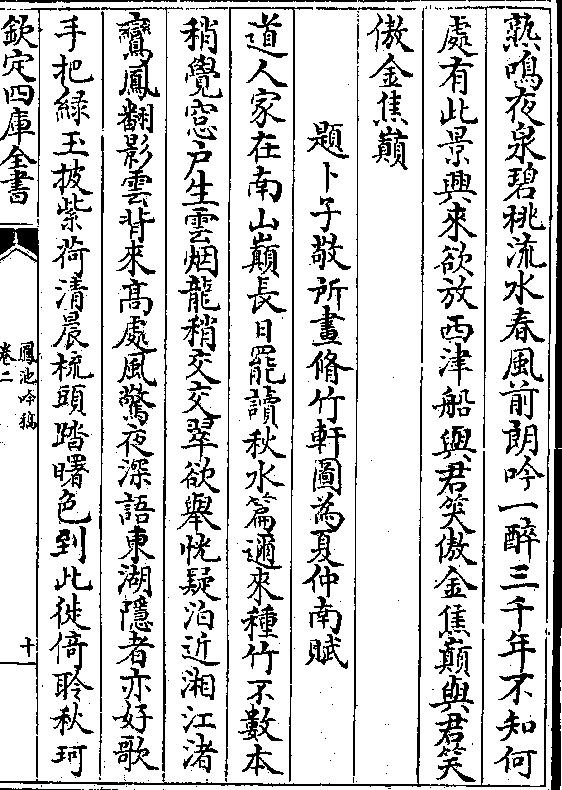 熟鳴夜泉碧桃流水春風前朗吟一醉三千年不知何
處有此景興來欲放西津船與君笑傲金焦巔與君笑
傲金焦巔
題卜子敬所畫脩竹軒圖為夏仲南賦
道人家在南山巔長日罷讀秋水篇邇來種竹不數本
稍覺窓户生雲烟龍稍交交翠欲舉恍疑泊近湘江渚
鸞鳳翻影雲背來高處風驚夜深語東湖隱者亦好歌
手把緑玉披紫荷清晨梳頭踏曙色到此徙倚聆秋珂
欽定四庫全書
鳳池吟稿
卷二
十